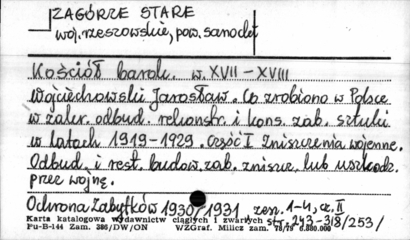 ZAGÓRZE STARE
woj. rzeszowskie, pow. sanocki
Kościół barok. w. XVII-XVIII
Wojciechowski Jarosław. Co zrobiono w Polsce
w zakr. odbud. rekonstr. i kons. zab. sztuki
w latach 1919-1929. Część I Zniszczenia wojenne.
Odbud. i rest. budow. zab. zniszc. lub uszkodz.
przez wojnę.
Ochrona Zabytków 1930/1931 zesz. 1-4, cz. II
str. 243-318/253/
Karta katalogowa wydawnictw ciągłych i zwartych
Pu-B-144 Zam. 386/DW/ON WZGraf. Milicz zam. 78/79 6.880.000